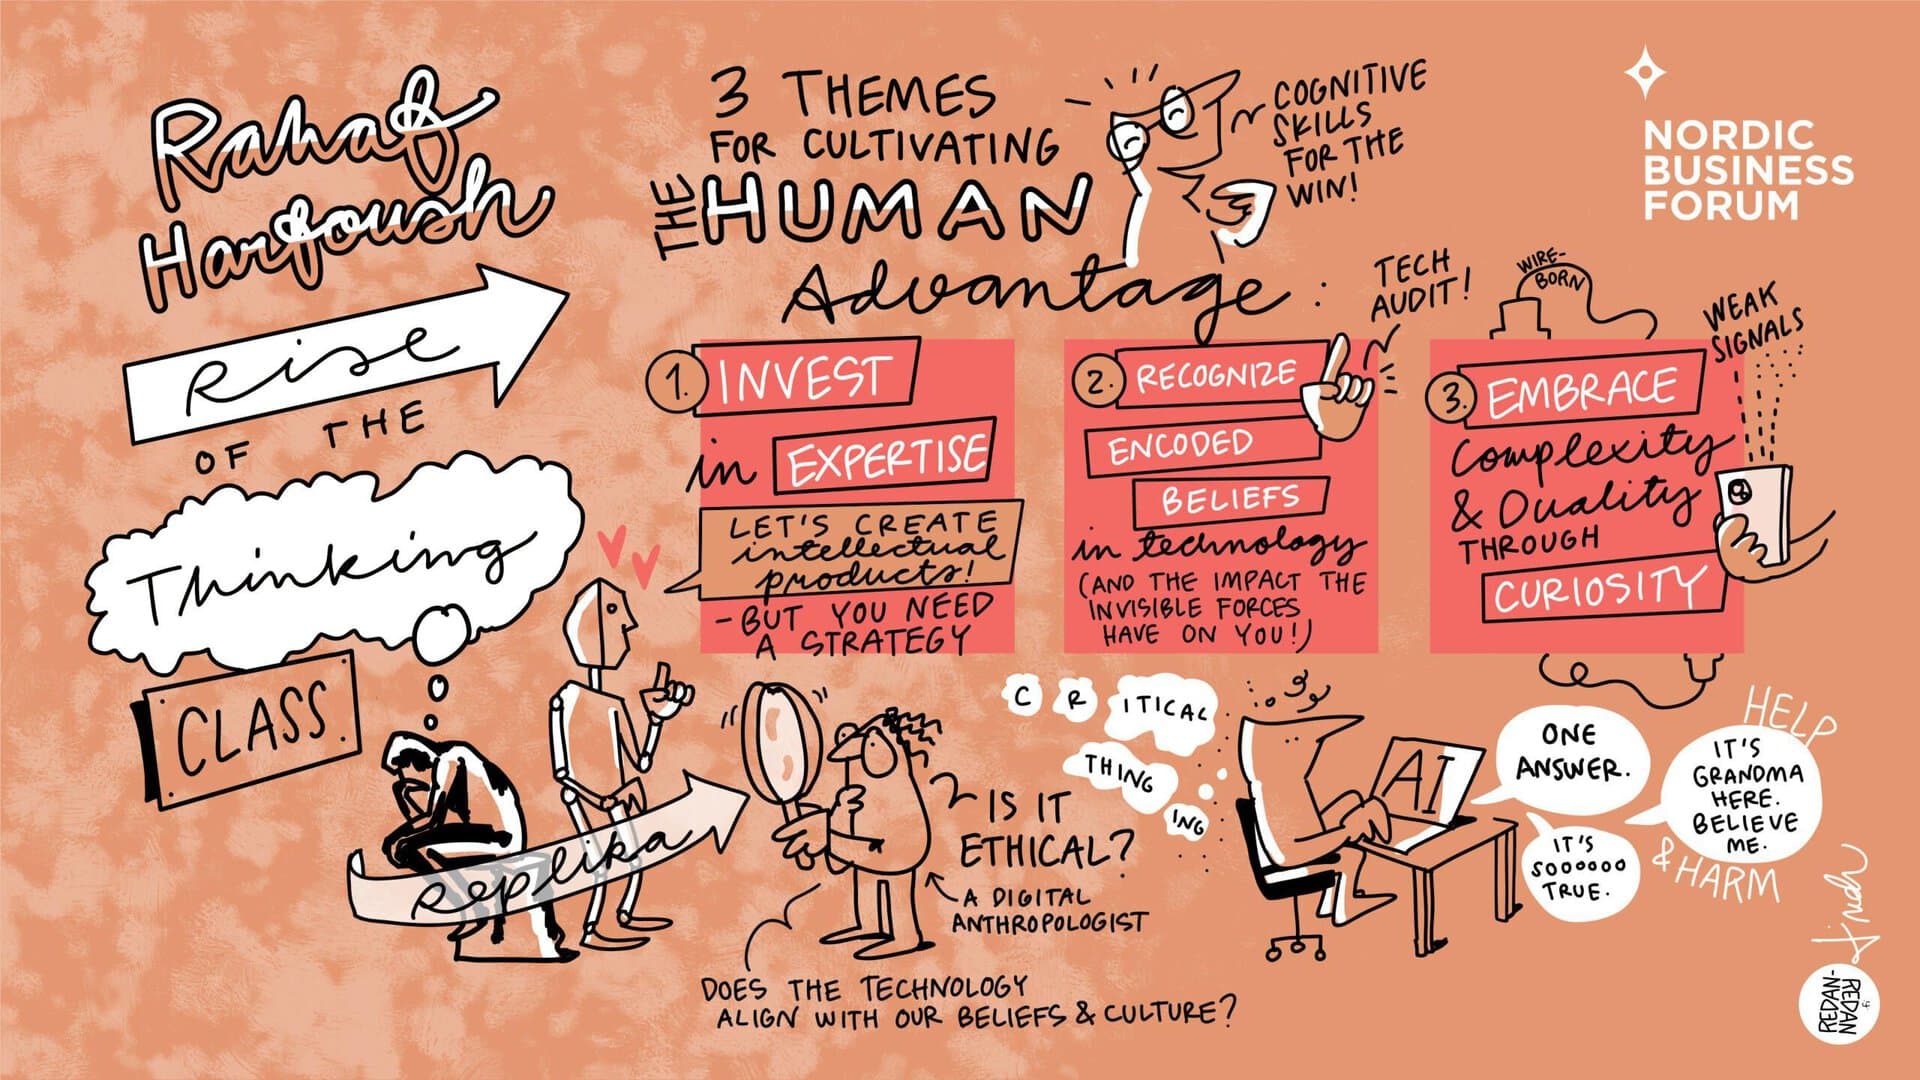 Rahaf
Harfoush
Rise
OF THE
Thinking
CLASS.
Replika
3 THEMES
FOR CULTIVATING
THE HUMAN
Advantage:
COGNITIVE
SKILLS
FOR THE
WIN!
NORDIC
BUSINESS
FORUM
1. INVEST
in EXPERTISE
LET'S CREATE
intellectual
products!
- BUT YOU NEED
A STRATEGY
TECH
AUDIT!
2. RECOGNIZE
ENCODED
BELIEFS
in technology
(AND THE IMPACT THE
INVISIBLE FORCES
HAVE ON YOU!)
WIRE-
BORN
WEAK
SIGNALS
3. EMBRACE
Complexity
& Duality
THROUGH
CURIOSITY
IS IT
ETHICAL?
A DIGITAL
ANTHROPOLOGIST
DOES THE TECHNOLOGY
ALIGN WITH OUR BELIEFS & CULTURE?
C R ITICAL
THING
ING
AI
ONE
ANSWER.
IT'S
SOOOOOO
TRUE.
HELP
IT'S
GRANDMA
HERE.
BELIEVE
ME.
& HARM
Linda
REDAN-
REDAN